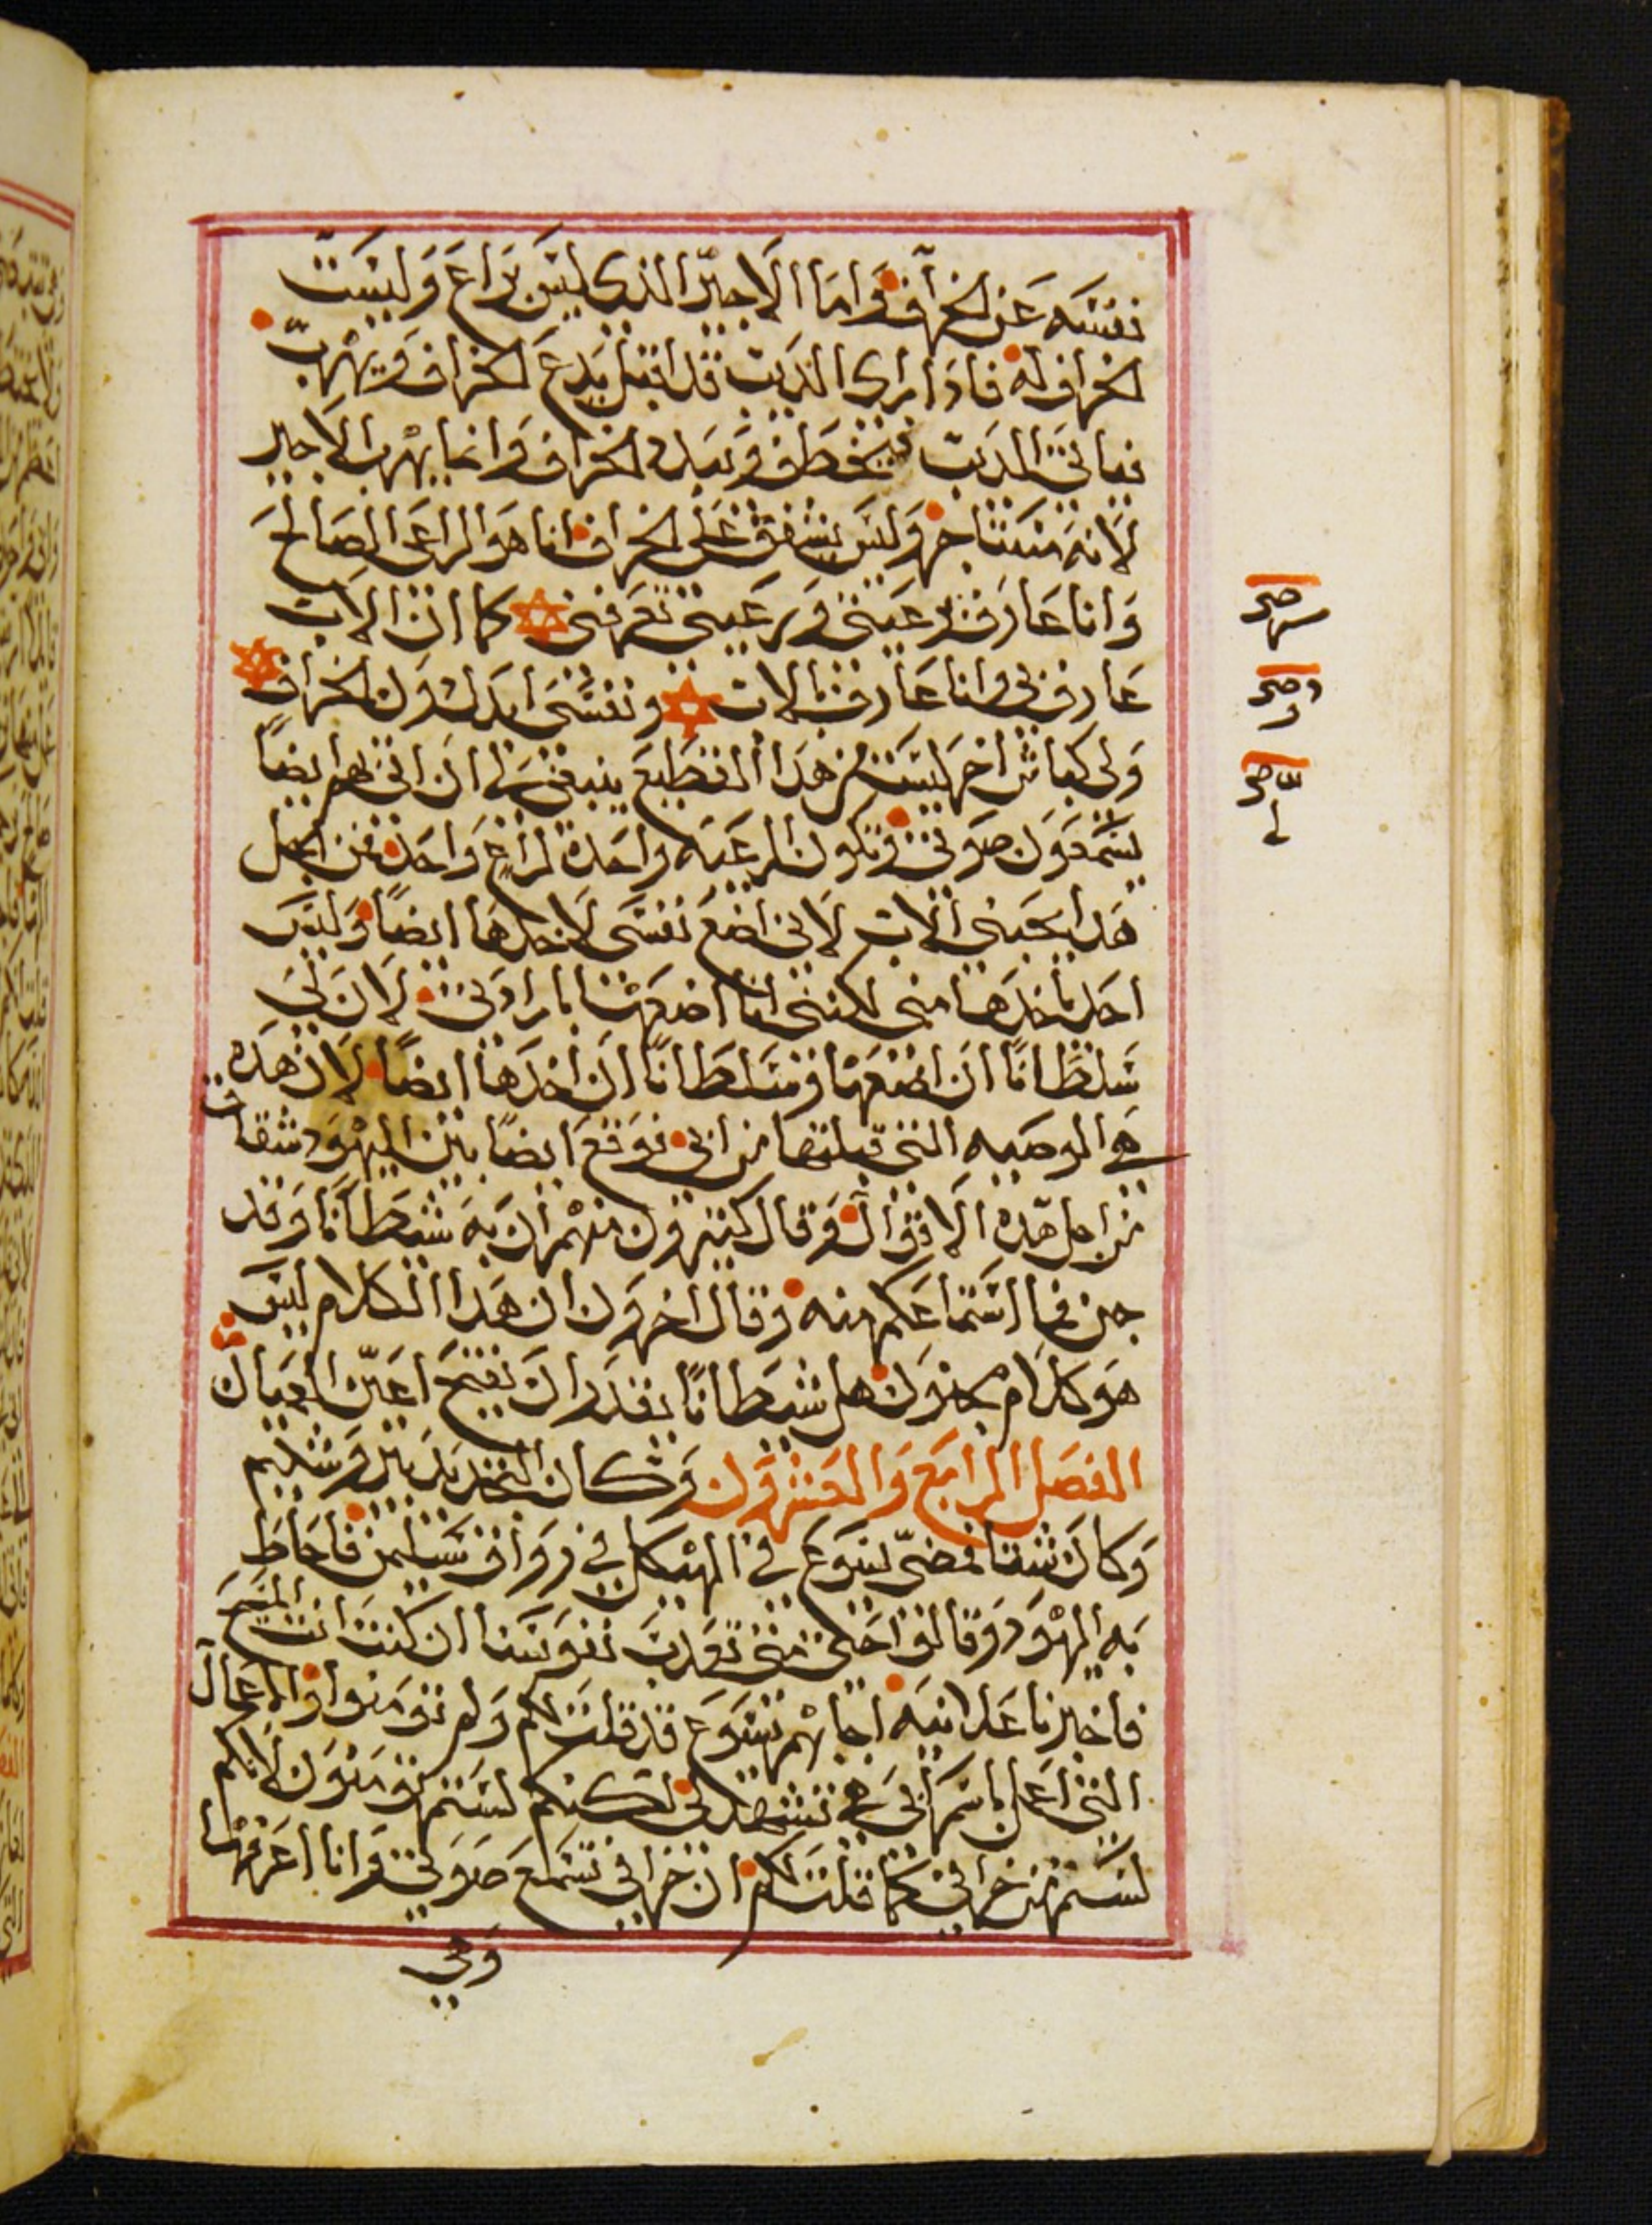 نفسه عن الخراف وَامَا الاَجيرّ الذى ليسَ برَاعَ وَليسَت
الخراف له فادَا راى الديب قد اقبل يدعَ الخراف وَيهرب
فياتى الديب فيخطف وَيبدد الخراف وَانما يهرب الاَجير
لاَنه مستاجر وَليس يشفق علي الخراف انا هوَ الراعى الصَالحَ
وَانا عَارف برعيتى وَرعيتى تعرفنى كما ان الاب
عَارف بى وانا عَارف بالاب وَنفسَى ابدل دوَن الخراف
وَلى كباش اخر ليسَت من هدَا القطيعَ ينبغى لى ان اتى بهم ايضاً
يسَمعَوَن صَوَتى وَتكون الرعَيه واحَدة لراعٍ وَاحَد من اجل
هَدا يحبنى الاب لاَنى اضعَ نفسَى لاَخدهَا ايضاً وَليسَ
احَد ياخدهَا منى لكننى انا اضعهَا بارادتى لاَن لىَ
سَلطَاناً ان اضعَهَا وَسَلطَاناً ان اخدهَا ايضاً لاَن هَده
هي الوصَيه التى قبلتها من ابى فوَقعَ ايضاً بين اليهوَد شقاق
من اجل هَده الاَقوَال وَقال كثيروَن منهم ان به شيطَاناً وَقد
جن فما استماعَكم منه وَقال اخروَن ان هَدا الكلام ليسَ
هوَ كلاَم مجنوَن هل شيطَاناً يقدر ان يفتح اعيّن العَميان
الفصَل الرابعَ وَالعَشروَن وَكان التجديد بيروَشليم
وَكان شتا فمضىّ يسَوَعَ في الهيكل في روَاق سَليمن فاحَاطَ
به اليهوَد وَقالوَا حَتى متى تعَدب نفوَسنا ان كنت انت المسيح
فاخبرنا عَلانيه اجابهم يسَوَعَ قد قلت لكم وَلم توَمنوا وَالاعمال
التى اعَمل باسَم ابى هي تشهد لى لكنكم لستم توَمنوَن لاَنكم
لسَتم من خرافى كما قلت لكم ان خرافى تسَمع صَوَتى وَانا اعرفها
وَهي